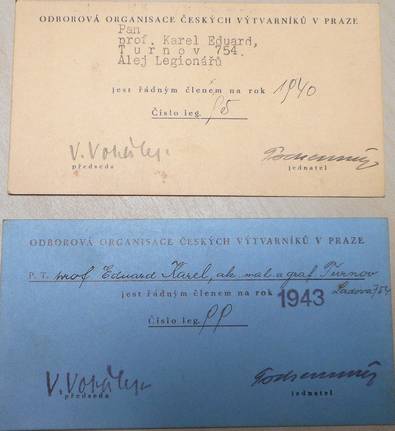 ODBOROVÁ ORGANISACE ČESKÝCH VÝTVARNÍKŮ V PRAZE
Pan
prof. Karel Eduard,
Turnov 754.
Alej Legionářů
jest řádným členem na rok 1940
Číslo leg.
předseda
jednatel
ODBOROVÁ ORGANISACE ČESKÝCH VÝTVARNÍKŮ V PRAZE
P. T. prof. Eduard Karel, ak. mal. a graf. Turnov
jest řádným členem na rok 1943 Ladova 754
Číslo leg. 99
předseda
jednatel